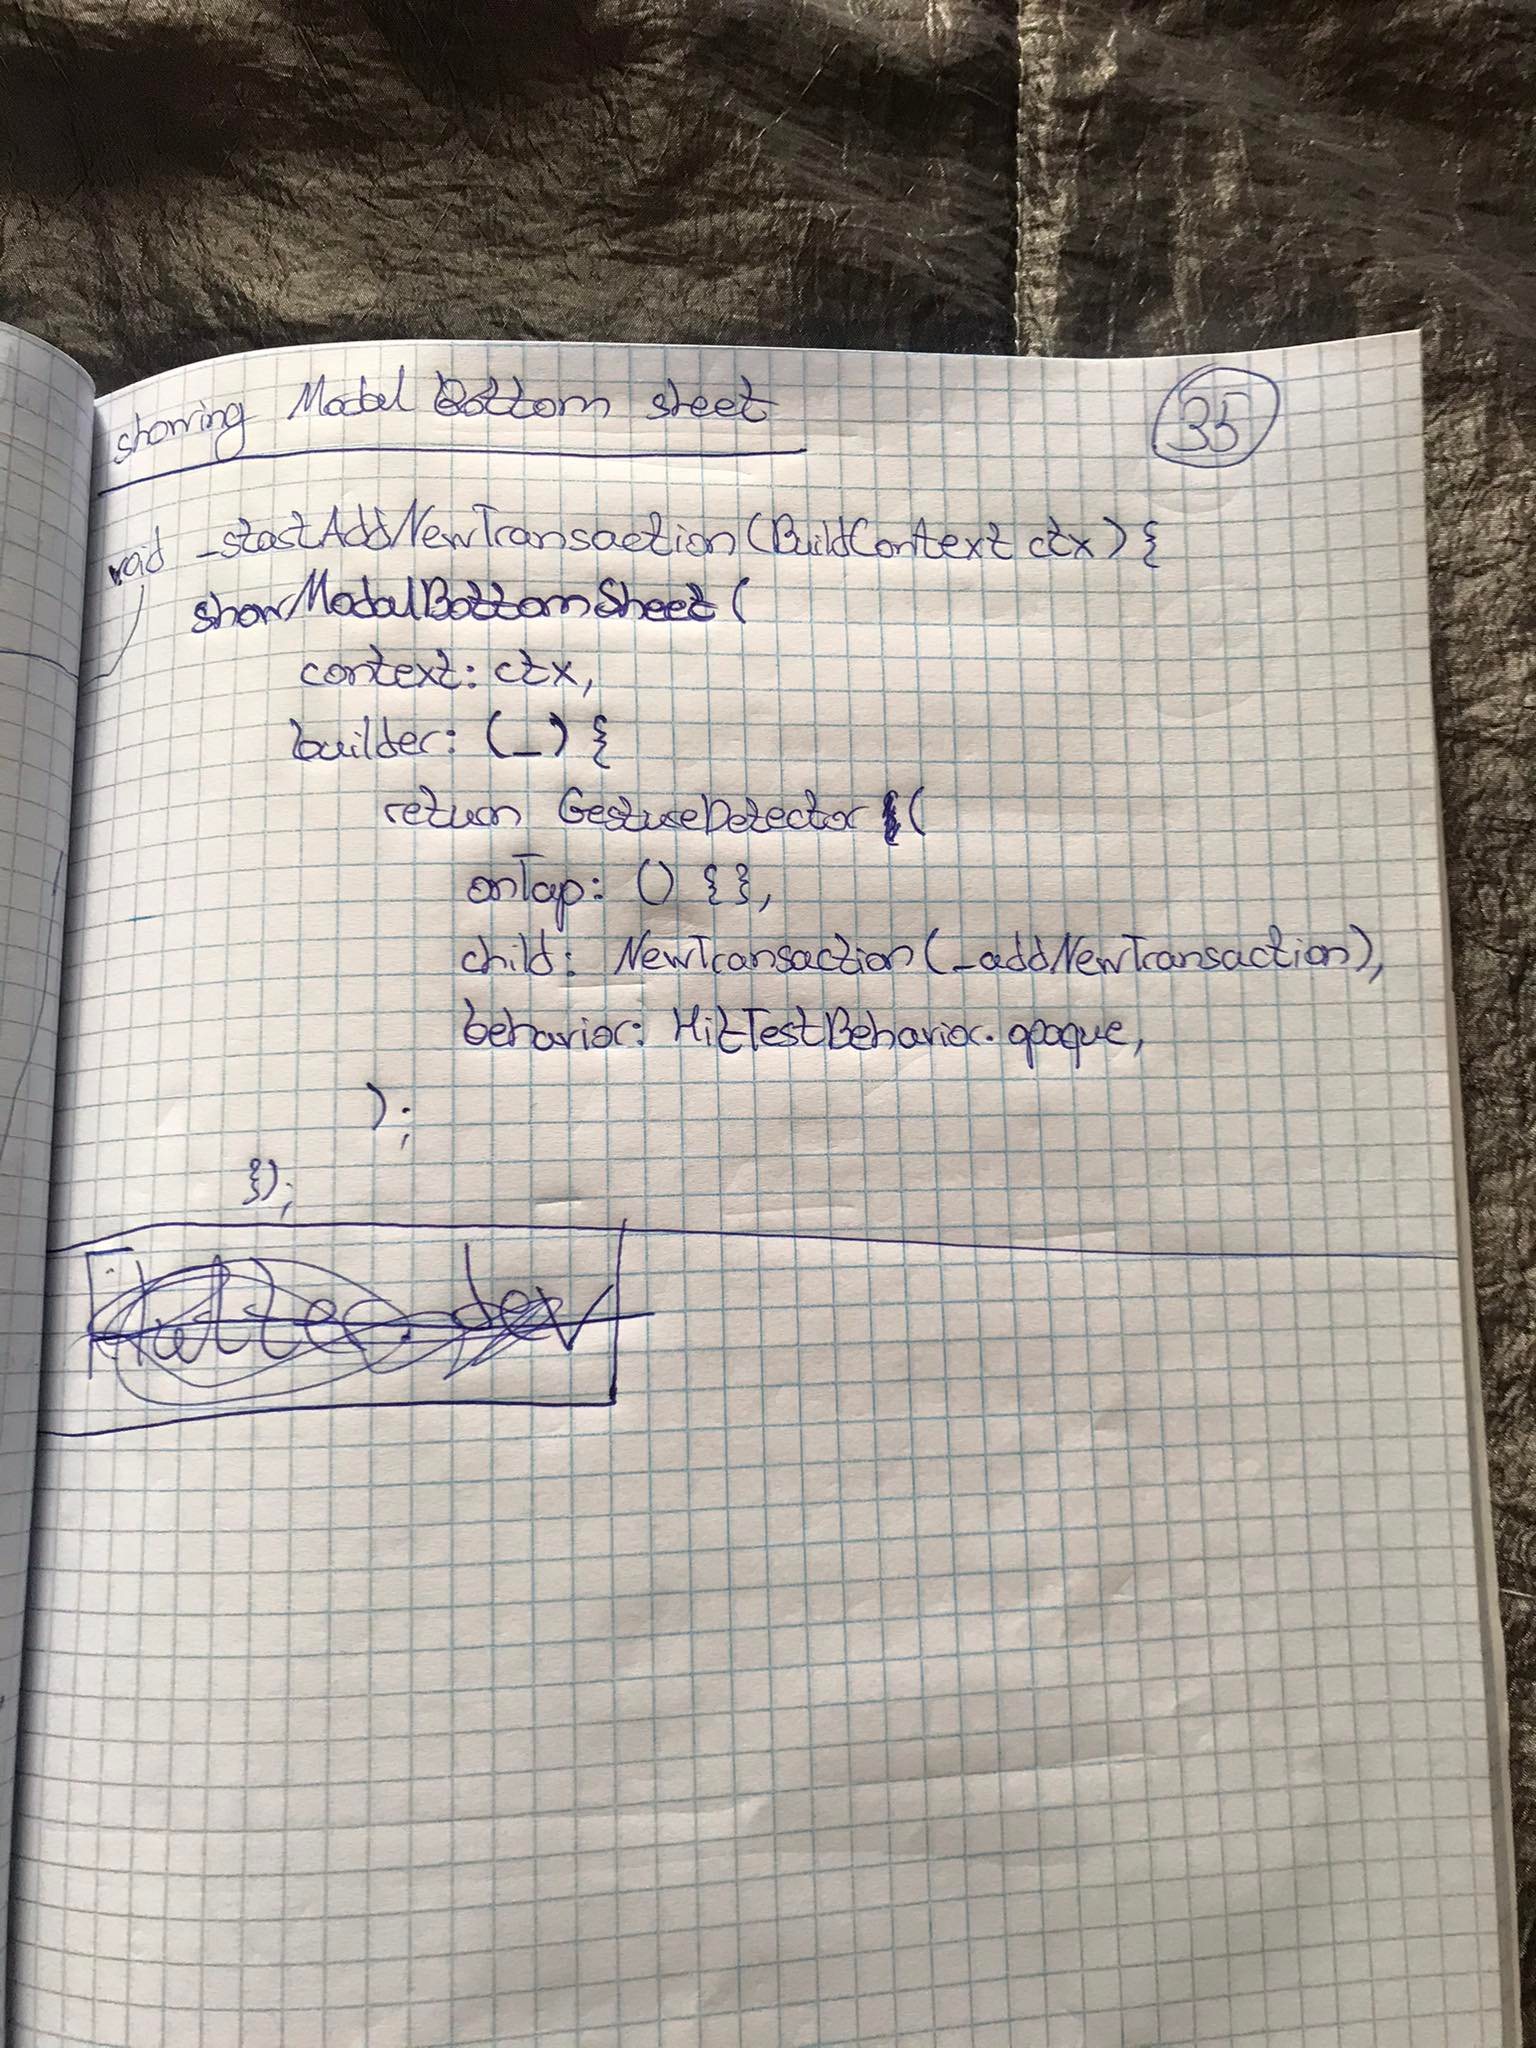 showing Modal Bottom sheet
35
void _startAddNewTransaction(BuildContext ctx) {
showModalBottomSheet(
context: ctx,
builder: (_) {
return GestureDetector (
onTap: () { },
child: NewTransaction(_addNewTransaction),
behavior: HitTestBehavior.opaque,
);
});
flutter.dev